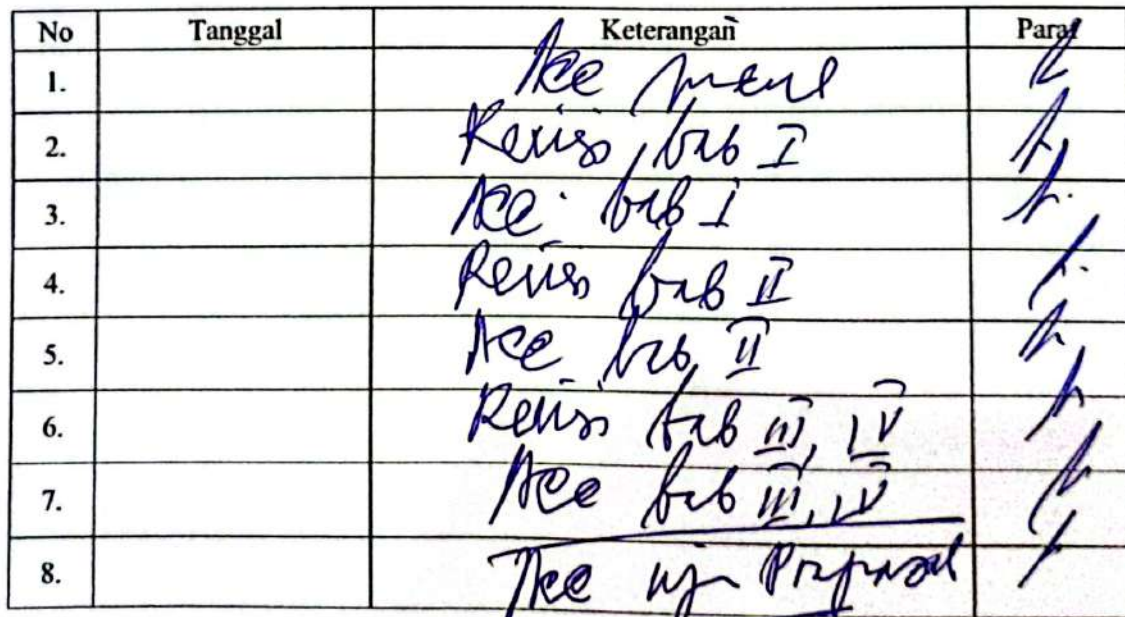 No Tanggal Keterangan Paraf
1. Acc
2. Revisi bab I
3. Acc bab I
4. Revisi bab II
5. Acc bab II
6. Revisi bab III, IV
7. Acc bab III, IV
8. Acc uji Proposal